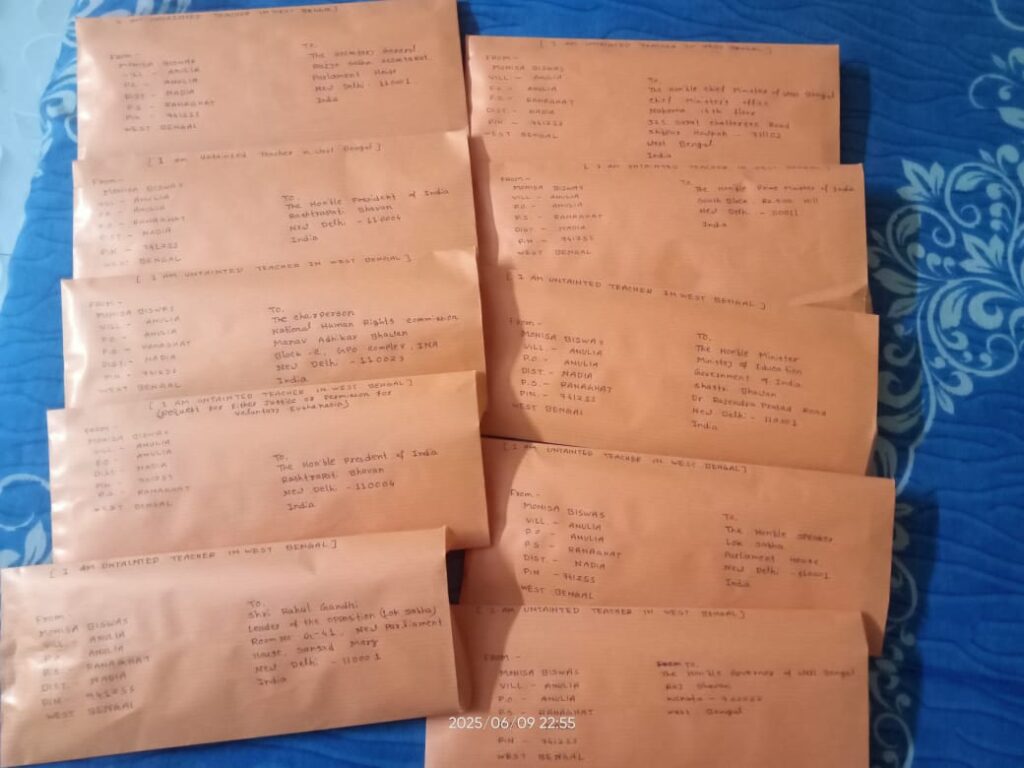 [ I AM UNTAINTED TEACHER IN WEST BENGAL ]
FROM -
MONISA BISWAS
VILL - ANULIA
P.O. - ANULIA
DIST - NADIA
P.S - RANAGHAT
PIN - 741255
WEST BENGAL
To,
The Secretary General
Rajya Sabha Secretariat
Parliament House
New Delhi - 110001
India
[ I am untainted Teacher in West Bengal ]
FROM -
MONISA BISWAS
VILL - ANULIA
P.O - ANULIA
P.S - RANAGHAT
DIST - NADIA
PIN - 741255
WEST BENGAL
To
The Hon'ble President of India
Rashtrapati Bhavan
New Delhi - 110004
India
[ I AM UNTAINTED TEACHER IN WEST BENGAL ]
FROM -
MONISA BISWAS
VILL - ANULIA
P.O. - ANULIA
P.S - RANAGHAT
DIST. - NADIA
PIN - 741255
WEST BENGAL
To,
The Chairperson
National Human Rights Commission
Manav Adhikar Bhawan
Block-C, GPO Complex, INA
New Delhi - 110023
India
[ I AM UNTAINTED TEACHER IN WEST BENGAL ]
(Request for Either Justice or Permission for
Voluntary Euthanasia)
FROM -
MONISA BISWAS
VILL - ANULIA
P.O - ANULIA
DIST - NADIA
PIN - 741255
P.S - RANAGHAT
WEST BENGAL
To,
The Hon'ble President of India
Rashtrapati Bhavan
New Delhi - 110004
India
[ I AM UNTAINTED TEACHER IN WEST BENGAL ]
From
MONISA BISWAS
VILL - ANULIA
P.O - ANULIA
P.S - RANAGHAT
DIST - NADIA
PIN - 741255
WEST BENGAL
To,
Shri Rahul Gandhi
Leader of the opposition (Lok Sabha)
Room No G-41, New Parliament
House, Sansad Marg
New Delhi - 110001
India
[ I AM UNTAINTED TEACHER IN WEST BENGAL ]
FROM -
MONISA BISWAS
VILL - ANULIA
P.O - ANULIA
P.S - RANAGHAT
DIST - NADIA
PIN - 741255
WEST BENGAL
To,
The Hon'ble Chief Minister of West Bengal
Chief Minister's office
Nabanna 14th floor
325 Sarat Chatterjee Road
Shibpur Howrah - 711102
West Bengal
India
[ I AM UNTAINTED TEACHER IN WEST BENGAL ]
FROM -
MONISA BISWAS
VILL - ANULIA
P.O. - ANULIA
P.S - RANAGHAT
DIST - NADIA
PIN - 741255
WEST BENGAL
To
The Hon'ble Prime Minister of India
South Block Raisina Hill
New Delhi - 110011
India
[ I AM UNTAINTED TEACHER IN WEST BENGAL ]
FROM -
MONISA BISWAS
VILL. - ANULIA
P.O. - ANULIA
DIST. - NADIA
P.S. - RANAGHAT
PIN. - 741255
WEST BENGAL
To,
The Hon'ble Minister
Ministry of Education
Government of India
Shastri Bhawan
Dr Rajendra Prasad Road
New Delhi - 110001
India
[ I AM UNTAINTED TEACHER IN WEST BENGAL ]
From -
MONISA BISWAS
VILL. - ANULIA
P.O - ANULIA
P.S - RANAGHAT
DIST. - NADIA
PIN - 741255
WEST BENGAL
To,
The Hon'ble Speaker
Lok Sabha
Parliament House
New Delhi - 110001
India
[ I AM UNTAINTED TEACHER IN WEST BENGAL ]
FROM -
MONISA BISWAS
VILL - ANULIA
P.O - ANULIA
P.S - RANAGHAT
PIN - 741255
WEST BENGAL
To,
The Hon'ble Governor of West Bengal
Raj Bhavan
Kolkata
West Bengal
2025/06/09 22:55